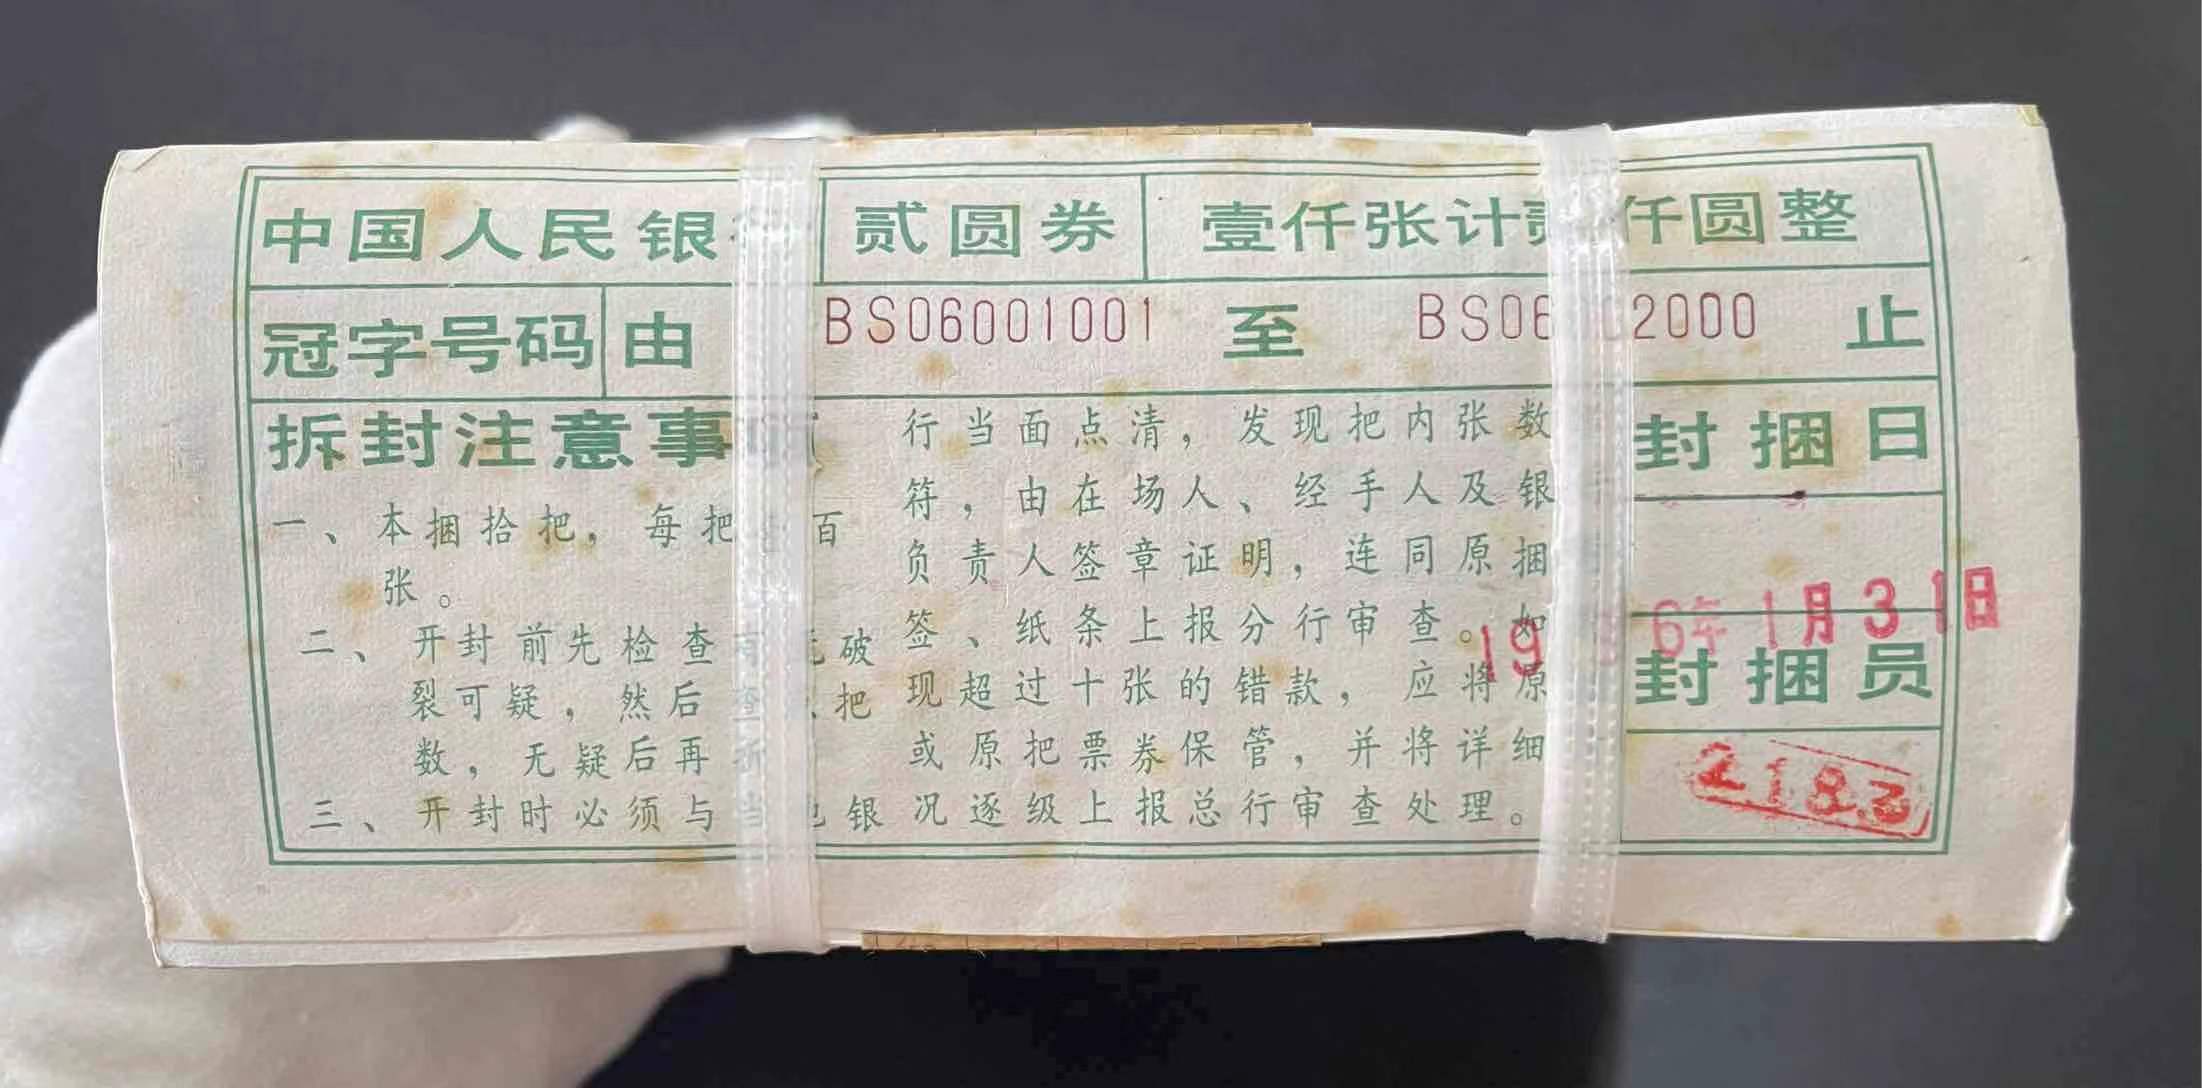 中国人民银 贰圆券 壹仟张计贰仟圆整
冠字号码 由 BS06001001 至 BS06 2000 止
拆封注意事
一、本捆拾把，每把 百
张。
二、开封前先检查 破
裂可疑，然后 把
数，无疑后再
三、开封时必须与当 银
行当面点清，发现把内张数
符，由在场人、经手人及银
负责人签章证明，连同原捆
签、纸条上报分行审查。如
现超过十张的错款，应将原
或原把票券保管，并将详细
况逐级上报总行审查处理。
封捆日
19 6年1月31日
封捆员
2183